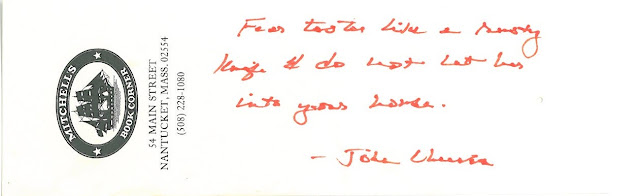 MITCHELL'S
BOOK CORNER
54 MAIN STREET
NANTUCKET, MASS. 02554
(508) 228-1080
Fear tastes like a rusty
knife & do not let her
into your house.
– John Cheever